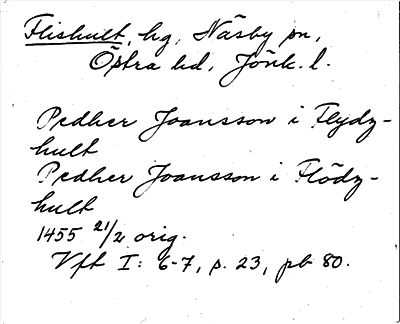 Flishult, hg, Näsby sn,
Östra hd, Jönk. l.
Pedher Joansson i Flydz-
hult
Pedher Joansson i Flödz-
hult
1455 21/2 orig.
Vft I: 6-7, s. 23, pb 80.